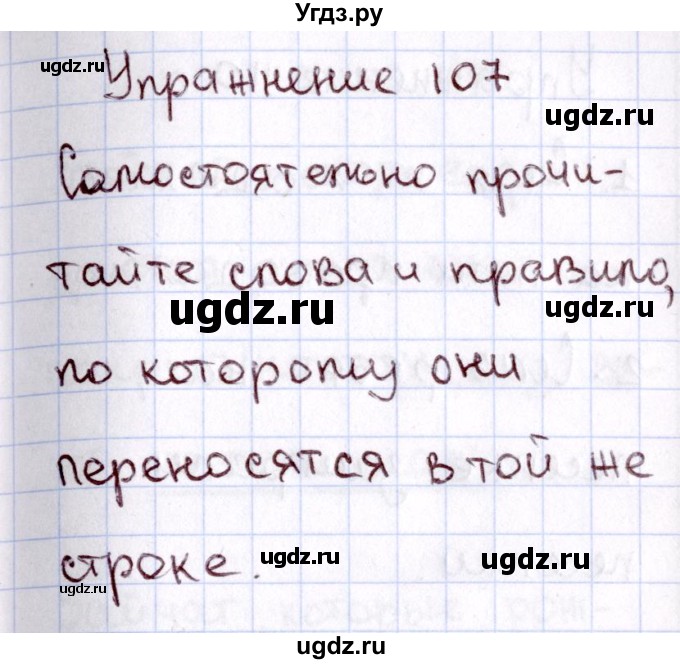 Угдз.ру
ugdz.ru
Упражнение 107
ugdz.ru
Самостоятельно прочи-
тайте слова и правило,
ugdz.ru ugdz.ru
по которому они
переносятся в той же
строке.
ugdz.ru ugdz.ru
ugdz.ru
ugdz.ru